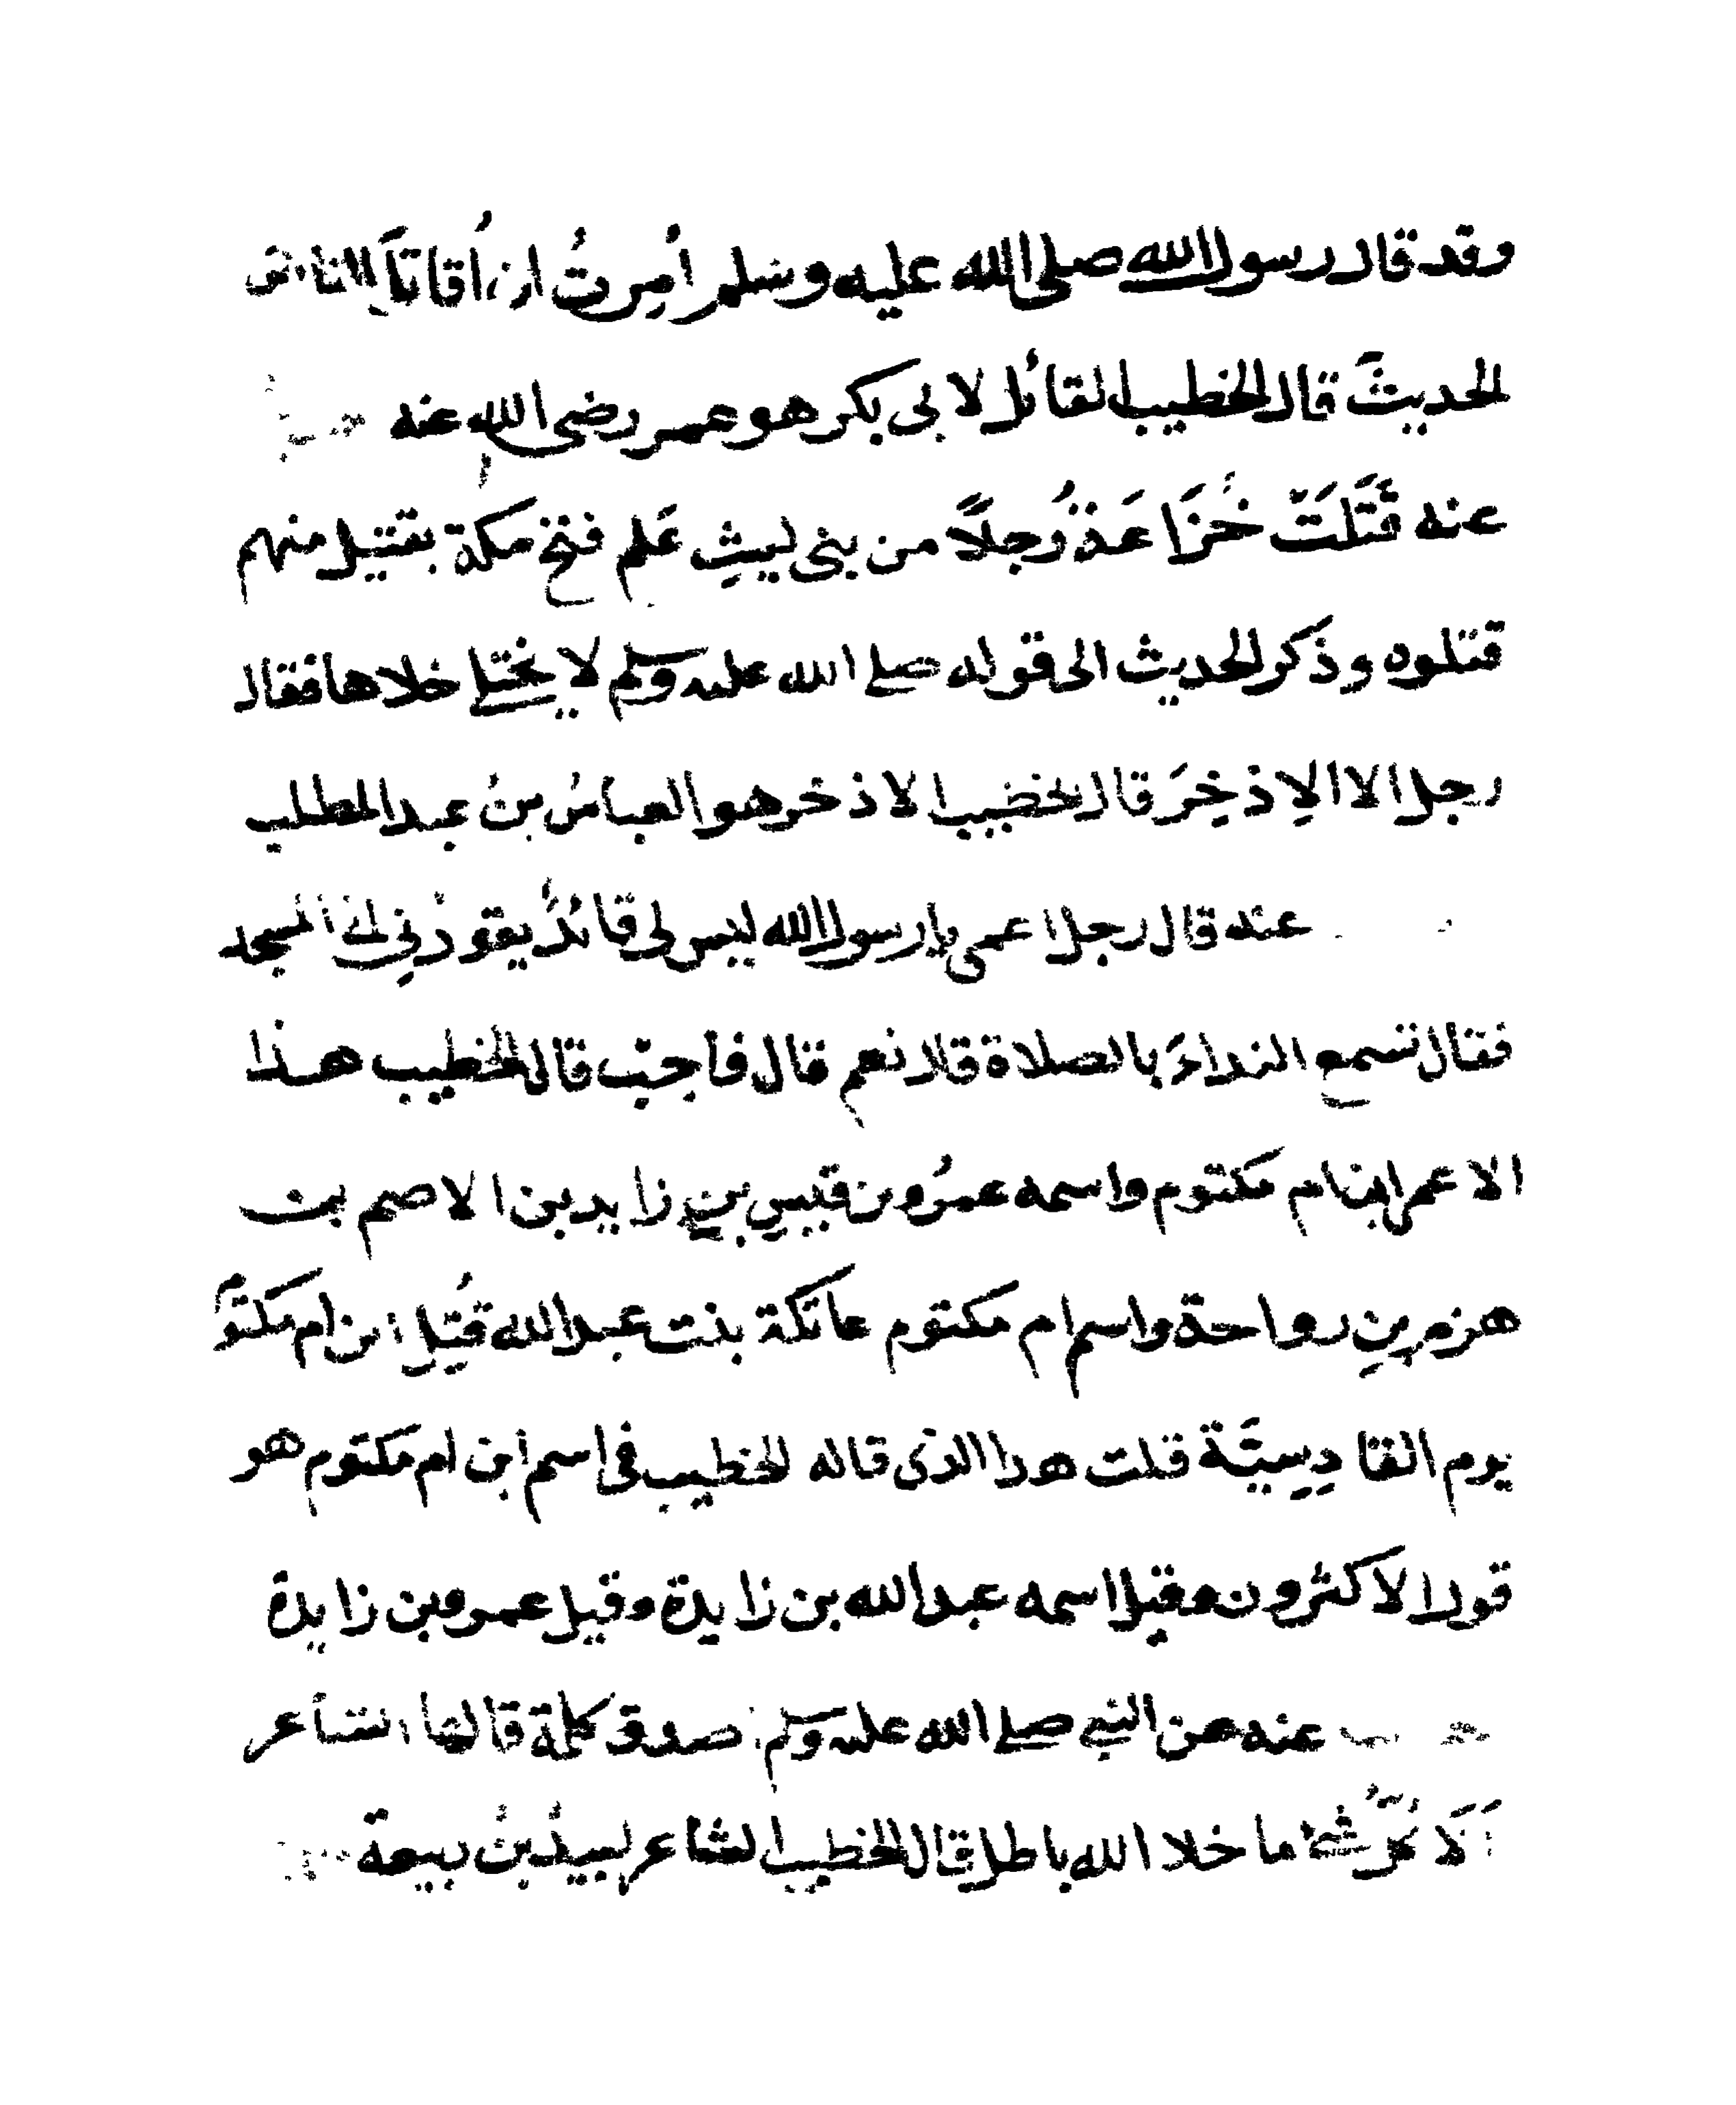 وقد قال رسول الله صلى الله عليه وسلم أُمِرتُ ان أُقاتلَ الناس
الحديثَ قال الخطيب القائل لابى بكر هو عمر رضى الله عنه
عنه قَتَلَتْ خُزَاعَةُ رُجلاً من بنى ليثٍ عَام فتح مكة بقتيل منهم
قتلوه وذكر الحديث الى قوله صلى الله عليه وسلم لا يختلى خلاها فقال
رجل الا الاِذخِرَ قال الخطيب الاذخر هو العباسُ بنُ عبد المطلب
عنه قال رجل اعمى يا رسول الله ليس لى قائدٌ يقودُنِى الى المسجد
فقال تسمع النداءَ بالصلاة قال نعم قال فأجبْ قال الخطيب هذا
الاعمى ابن ام مكتوم واسمه عمرُو بن قيسِ بنِ زايد بن الاصم بن
هزم بنِ رواحة واسم ام مكتوم عاتكة بنت عبد الله قُتِل ابن ام مكتومٍ
يوم القادِسِيَّة قلت هذا الذى قاله الخطيب فى اسم ابن ام مكتوم هو
قول الاكثرون وقيل اسمه عبد الله بن زايدة وقيل عمرو بن زايدة
عنه عن النبي صلى الله عليه وسلم اصدق كلمة قالها الشاعر
اَلَا كُلُّ شئٍ ما خلا الله باطل قال الخطيب الشاعر لبيدُ بنُ ربيعة